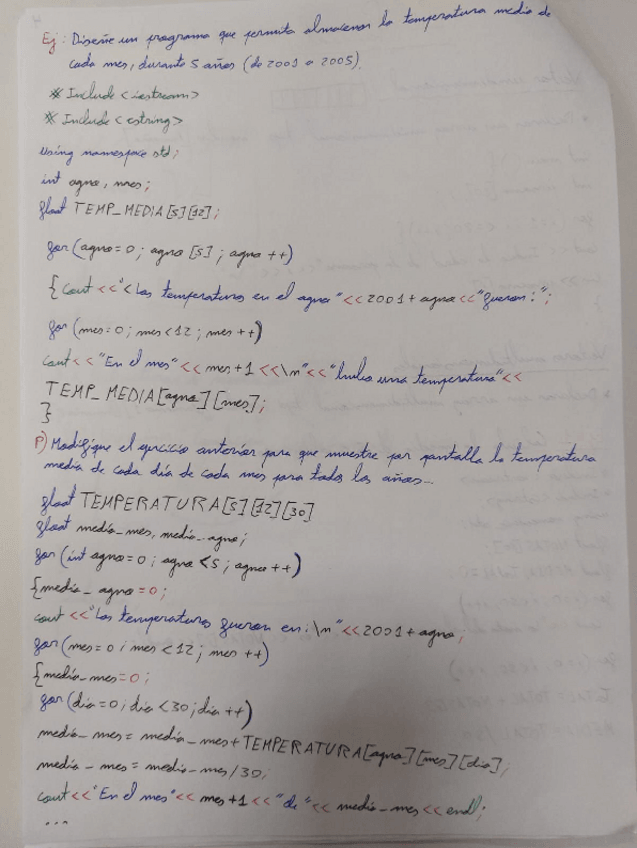 Ej: Diseñe un programa que permita almacenar la temperatura media de
cada mes, durante 5 años (de 2001 a 2005).
* Include <iostream>
* Include <cstring>
Using namespace std;
int agno, mes;
float TEMP_MEDIA[5][12];
for (agno=0; agno [5]; agno ++)
{cout <<"< Las temperaturas en el agno" << 2001 + agno <<"fueron:";
for (mes=0; mes<12; mes++)
cout<< "En el mes" << mes+1 <<\n"<< "hubo una temperatura" <<
TEMP_MEDIA[agno][mes];
}
P) Modifique el ejercicio anterior para que muestre por pantalla la temperatura
media de cada día de cada mes para todos los años...
float TEMPERATURA[5][12][30]
float media_mes, media_agno;
for (int agno=0; agno <5; agno++)
{media_agno=0;
cout <<"Las temperaturas fueron en: \n" <<2001+ agno;
for (mes=0; mes <12; mes ++)
{media_mes=0;
for (dia=0; dia <30; dia ++)
media_mes= media_mes+TEMPERATURA[agno][mes][dia];
media_mes= media_mes/30;
cout <<"En el mes" << mes+1 << "de" << media_mes << endl;
...